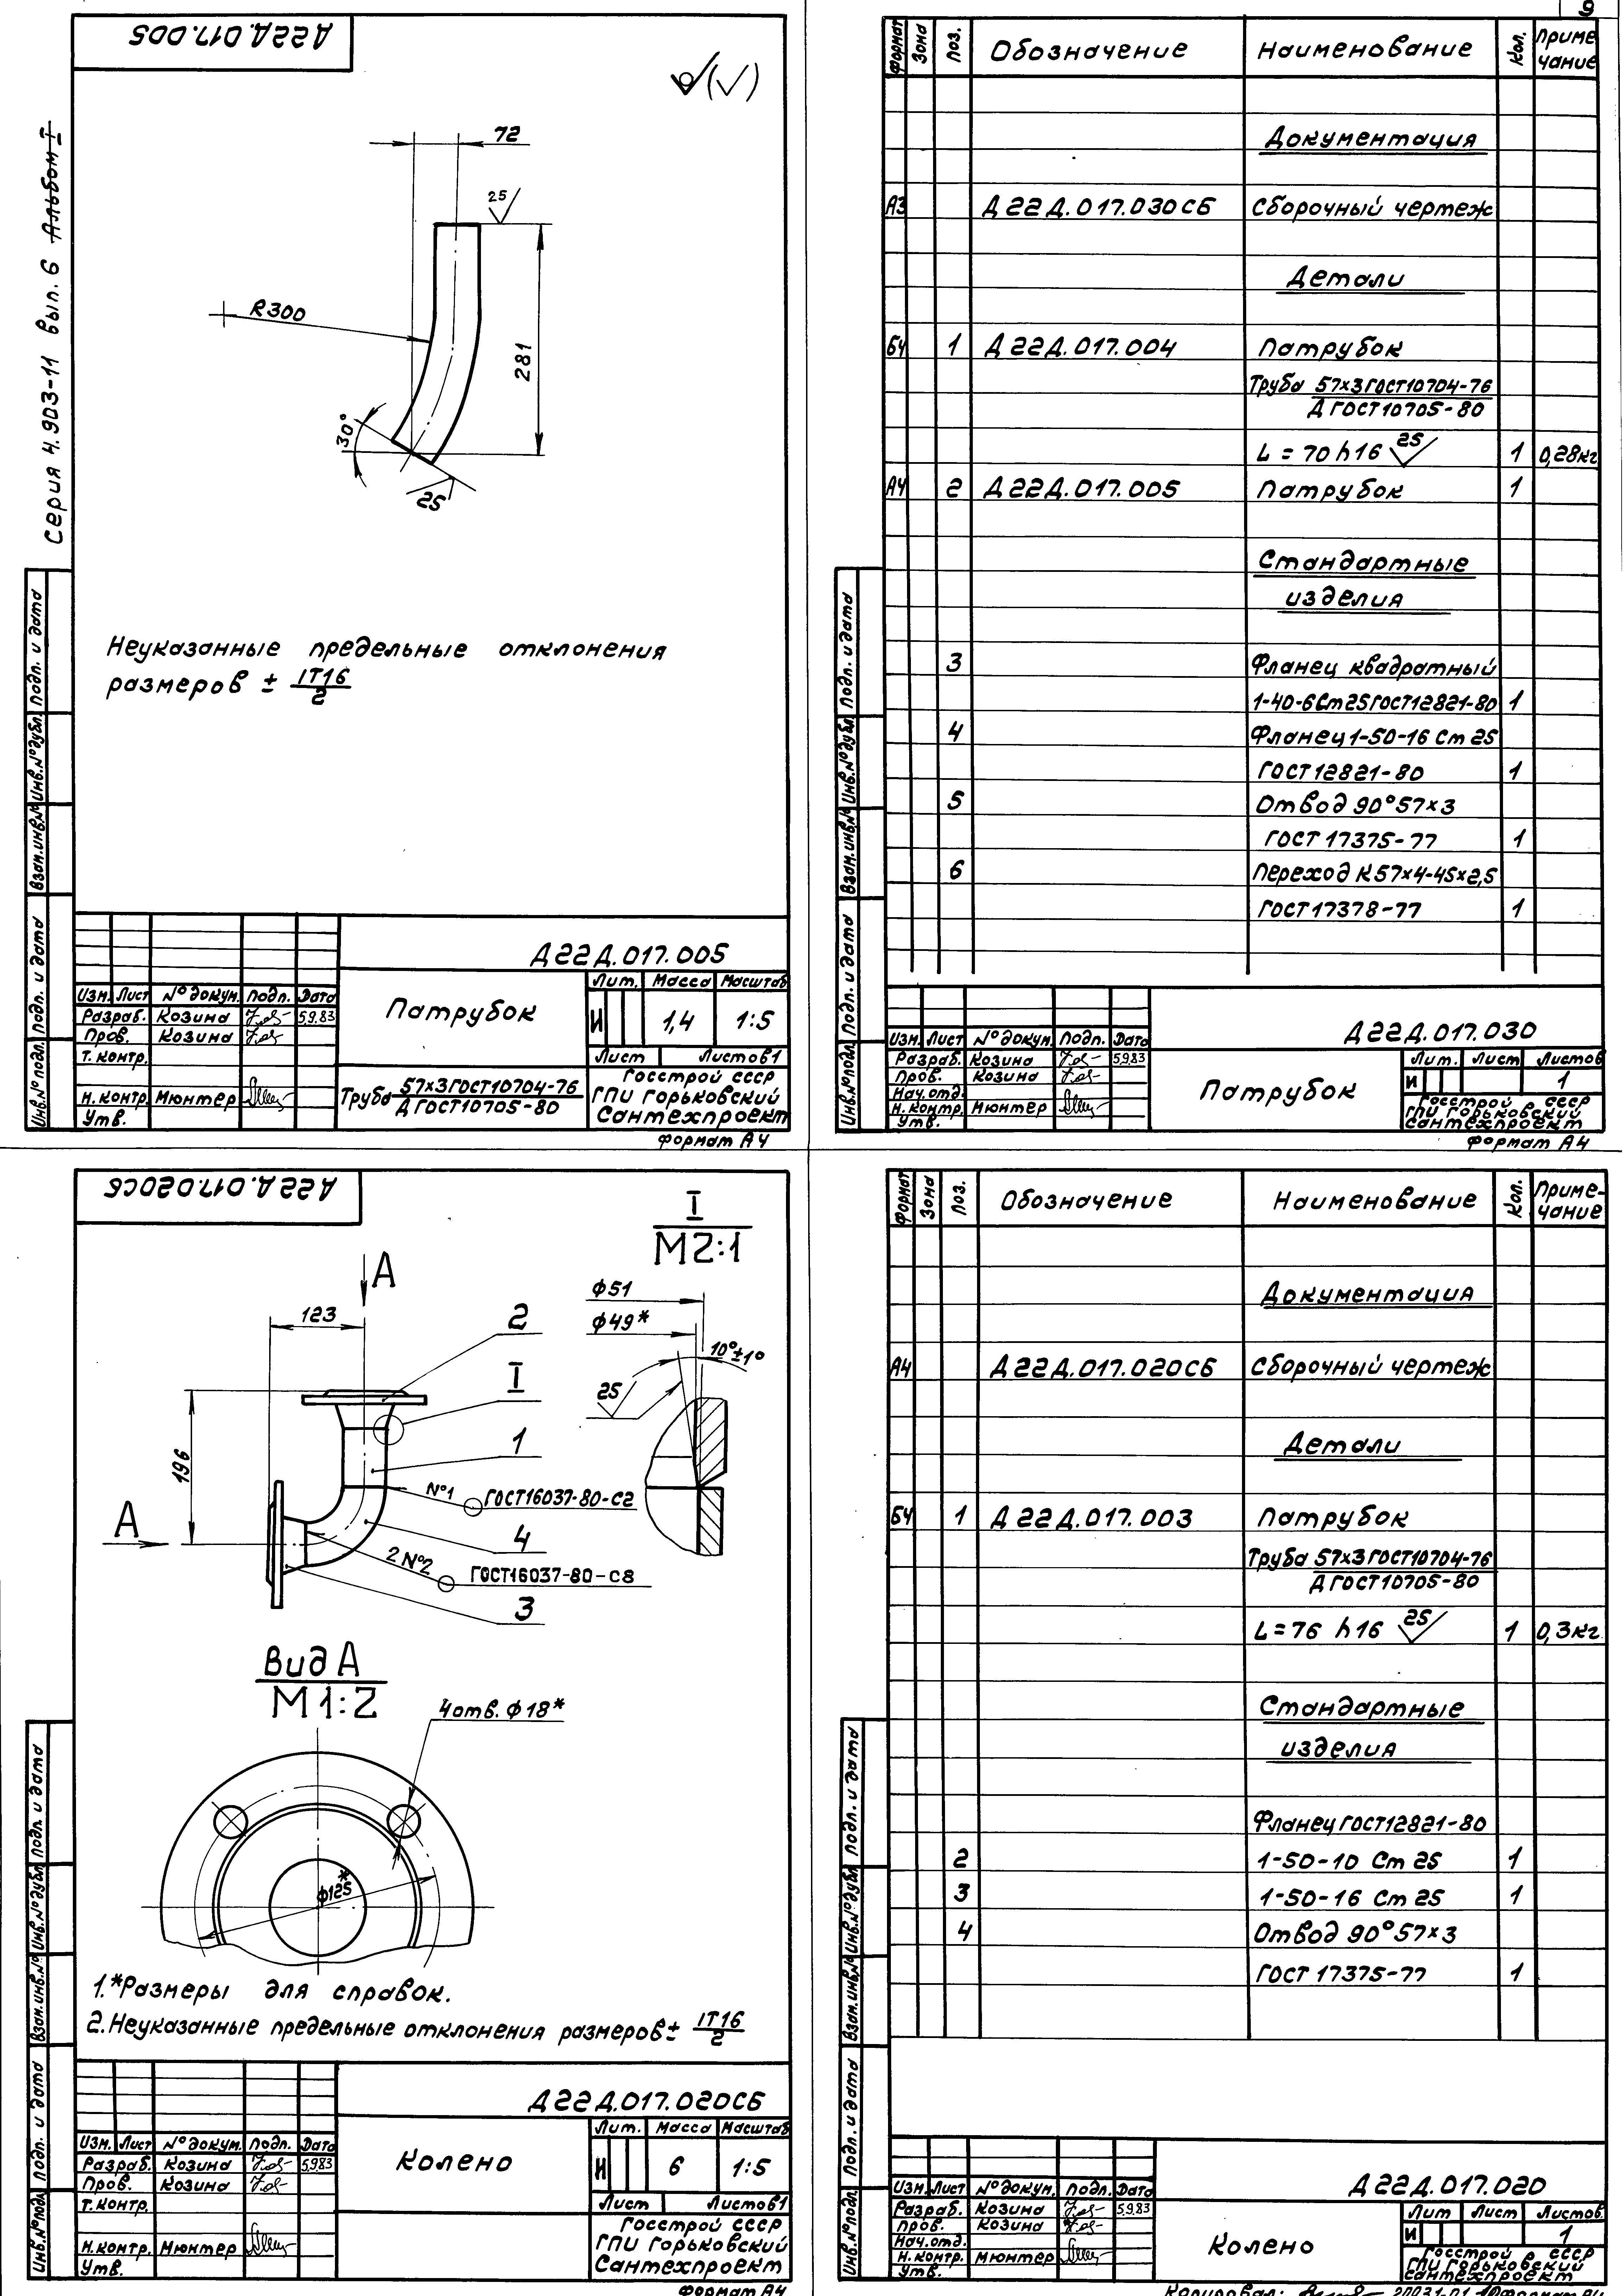 Д22Д.017.005
Серия 4.903-11 вып. 6 Альбом I
(√)
72
25
R300
281
30°
25
Неуказанные предельные отклонения
размеров ± IT16/2
Подп. и дата
Инв.№дубл.
Взам.инв.№
Подп. и дата
Инв.№подл.
Д22Д.017.005
Изм. Лист №докум. Подп. Дата
Разраб. Козина 5.9.83
Пров. Козина
Т.контр.
Н.контр. Мюнтер
Утв.
Патрубок
Лит. Масса Масштаб
И 1,4 1:5
Лист Листов 1
Труба 57×3 ГОСТ10704-76
Д ГОСТ10705-80
Госстрой СССР
ГПИ Горьковский
Сантехпроект
Формат А4
9
Формат Зона Поз. Обозначение Наименование Кол. Примечание
Документация
А3 Д22Д.017.030СБ Сборочный чертеж
Детали
БЧ 1 Д22Д.017.004 Патрубок
Труба 57×3 ГОСТ10704-76
Д ГОСТ10705-80
L = 70 h16 25 1 0,28кг
А4 2 Д22Д.017.005 Патрубок 1
Стандартные
изделия
3 Фланец квадратный
1-40-6 Ст25 ГОСТ12821-80 1
4 Фланец 1-50-16 Ст 25
ГОСТ12821-80 1
5 Отвод 90° 57×3
ГОСТ 17375-77 1
6 Переход К57×4-45×2,5
ГОСТ17378-77 1
Подп. и дата
Инв.№дубл.
Взам.инв.№
Подп. и дата
Инв.№подл.
Д22Д.017.030
Изм. Лист №докум. Подп. Дата
Разраб. Козина 5.9.83
Пров. Козина
Нач.отд.
Н.контр. Мюнтер
Утв.
Патрубок
Лит. Лист Листов
И 1
Госстрой СССР
ГПИ Горьковский
Сантехпроект
Формат А4
Д22Д.017.020СБ
I
М2:1
А
123
2
I
1
196
№1 ГОСТ16037-80-С2
А
4
2 №2 ГОСТ16037-80-С8
3
ф51
ф49*
10°±1°
25
Вид А
М1:2
4 отв. ф18*
ф125*
1.*Размеры для справок.
2.Неуказанные предельные отклонения размеров ± IT16/2
Подп. и дата
Инв.№дубл.
Взам.инв.№
Подп. и дата
Инв.№подл.
Д22Д.017.020СБ
Изм. Лист №докум. Подп. Дата
Разраб. Козина 5.9.83
Пров. Козина
Т.контр.
Н.контр. Мюнтер
Утв.
Колено
Лит. Масса Масштаб
И 6 1:5
Лист Листов 1
Госстрой СССР
ГПИ Горьковский
Сантехпроект
Формат А4
Формат Зона Поз. Обозначение Наименование Кол. Приме-
чание
Документация
А4 Д22Д.017.020СБ Сборочный чертеж
Детали
БЧ 1 Д22Д.017.003 Патрубок
Труба 57×3 ГОСТ10704-76
Д ГОСТ10705-80
L=76 h16 25 1 0,3кг
Стандартные
изделия
Фланец ГОСТ12821-80
2 1-50-10 Ст 25 1
3 1-50-16 Ст 25 1
4 Отвод 90° 57×3
ГОСТ 17375-77 1
Подп. и дата
Инв.№дубл.
Взам.инв.№
Подп. и дата
Инв.№подл.
Д22Д.017.020
Изм. Лист №докум. Подп. Дата
Разраб. Козина 5.9.83
Пров. Козина
Нач.отд.
Н.контр. Мюнтер
Утв.
Колено
Лит Лист Листов
И 1
Госстрой СССР
ГПИ Горьковский
Сантехпроект
Копировал: 20031-01 10 Формат А4